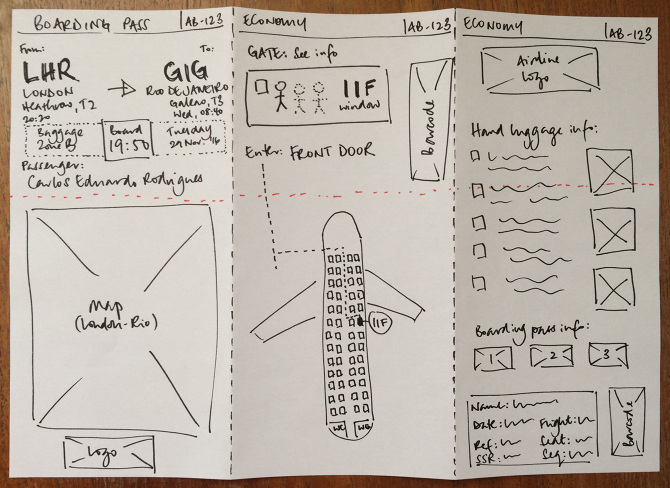 BOARDING PASS
AB-123
From:
To:
LHR
GIG
LONDON
RIO DE JANEIRO
Heathrow, T2
Galeao, T3
20:20
Wed, 08:40
Baggage
Zone B
Board
19:50
Tuesday
29 Nov. '16
Passenger:
Carlos Eduardo Rodrigues
Map
(London-Rio)
Logo
ECONOMY
AB-123
GATE: See info
11F
window
Barcode
Enter: FRONT DOOR
11F
WC
WC
ECONOMY
AB-123
Airline
Logo
Hand luggage info:
Boarding pass info:
1
2
3
Name:
Date:
Flight:
Ref:
Seat:
SSR:
Seq:
Barcode